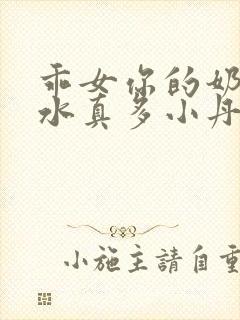 乖女你的奶
水真多小丹
小施主請自重